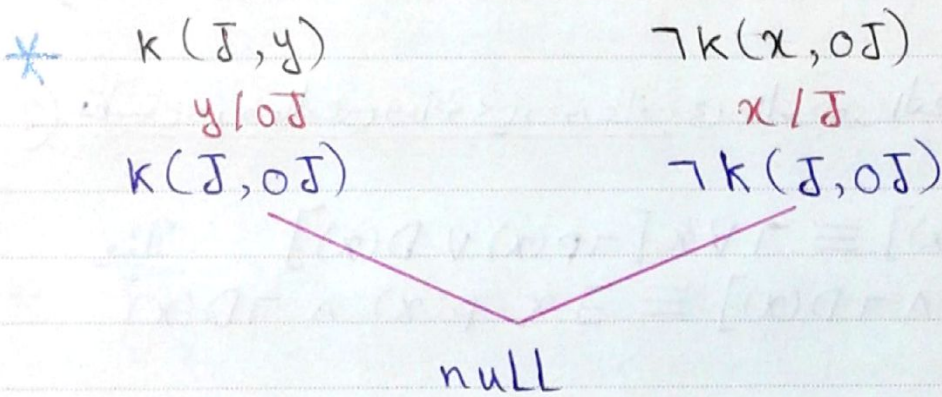 * K(J,y) ¬K(x,OJ)
y/OJ x/J
K(J,OJ) ¬K(J,OJ)
null